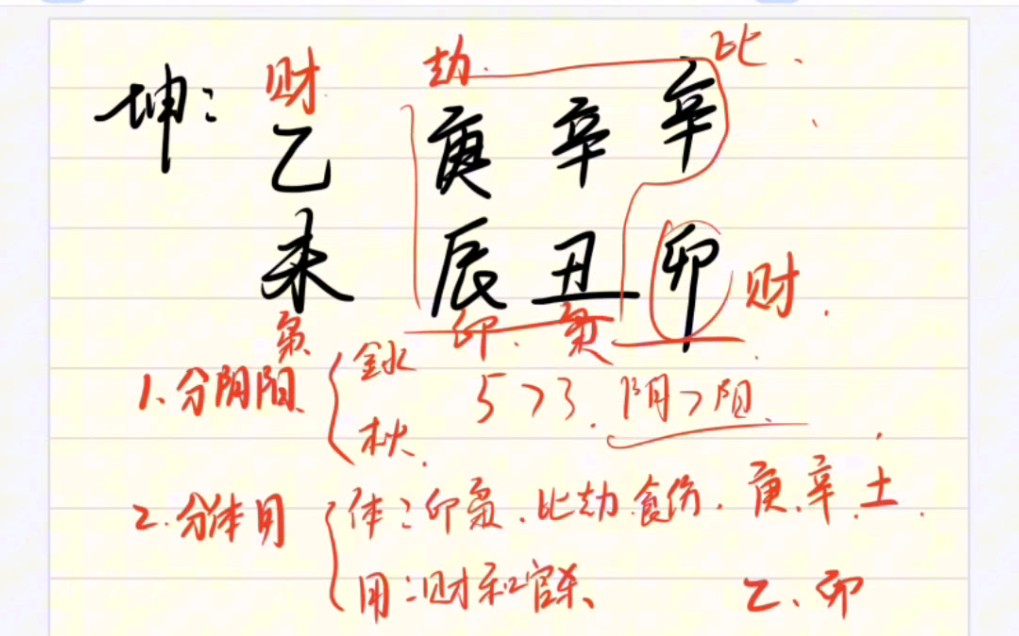 财 劫 比
坤: 乙 庚 辛 辛
未 辰 丑 卯 财
枭 印 枭
1. 分阴阳 { 金水 5>3. 阴>阳
木火
2. 分体用 { 体:印枭.比劫.食伤. 庚.辛.土.
用:财和官杀、 乙、卯